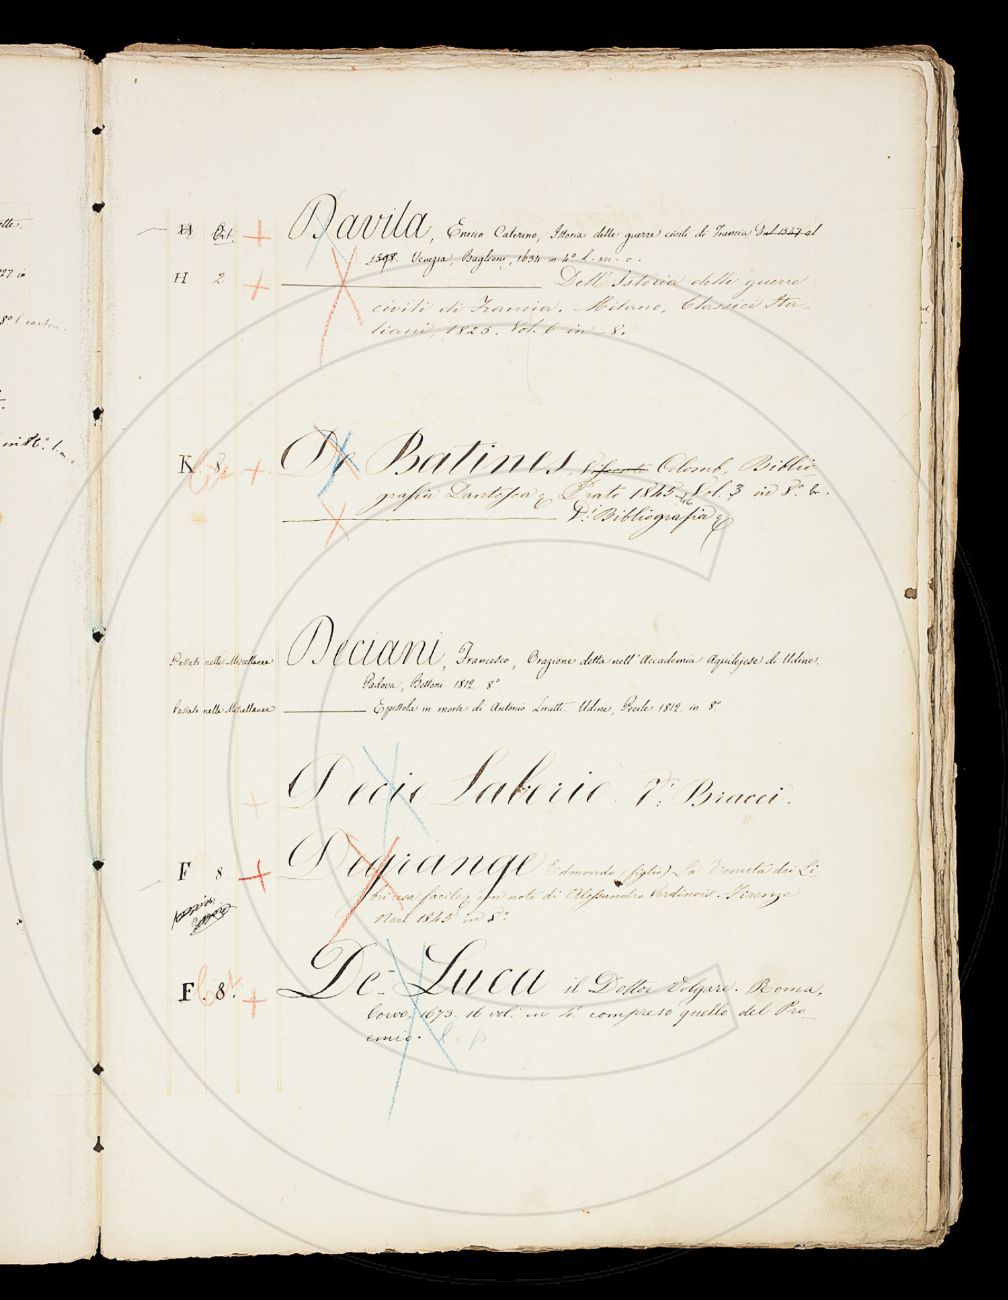 H Davila, Enrico Caterino, Istoria delle guerre civili di Francia dal 1547 al
1598. Venezia, Baglioni, 1634 in 4º l. m. c.
H 2 Dell' Istoria delle guerre
civili di Francia. Milano, Classici Ita-
liani, 1825. Vol. 6 in 8.
K 8. De Batines Visconte Colomb, Biblio
grafia Dantesca Prato 1845-46 Vol. 3 in 8º
Vi Bibliografia
Passato nelle Miscellanee Deciani, Francesco, Orazione detta nell' Accademia Aquilejese di Udine.
Padova, Bettoni 1812. 8º
Passato nelle Miscellanee Epistola in morte di Antonio Liruti. Udine, Pecile 1812. in 8º.
Decio Laberio. Vi Bracci.
F 8 Degrange Edmondo (figlio) La Tenuta dei Li
bri resa facile con note di Alessandro Verdinois. Firenze
1845 in 8º
F. 8. De-Luca il Dottor Volgare. Roma,
Corvo, 1673. 16 vol. in 4º compreso quello del Pro-
emio.
l. p